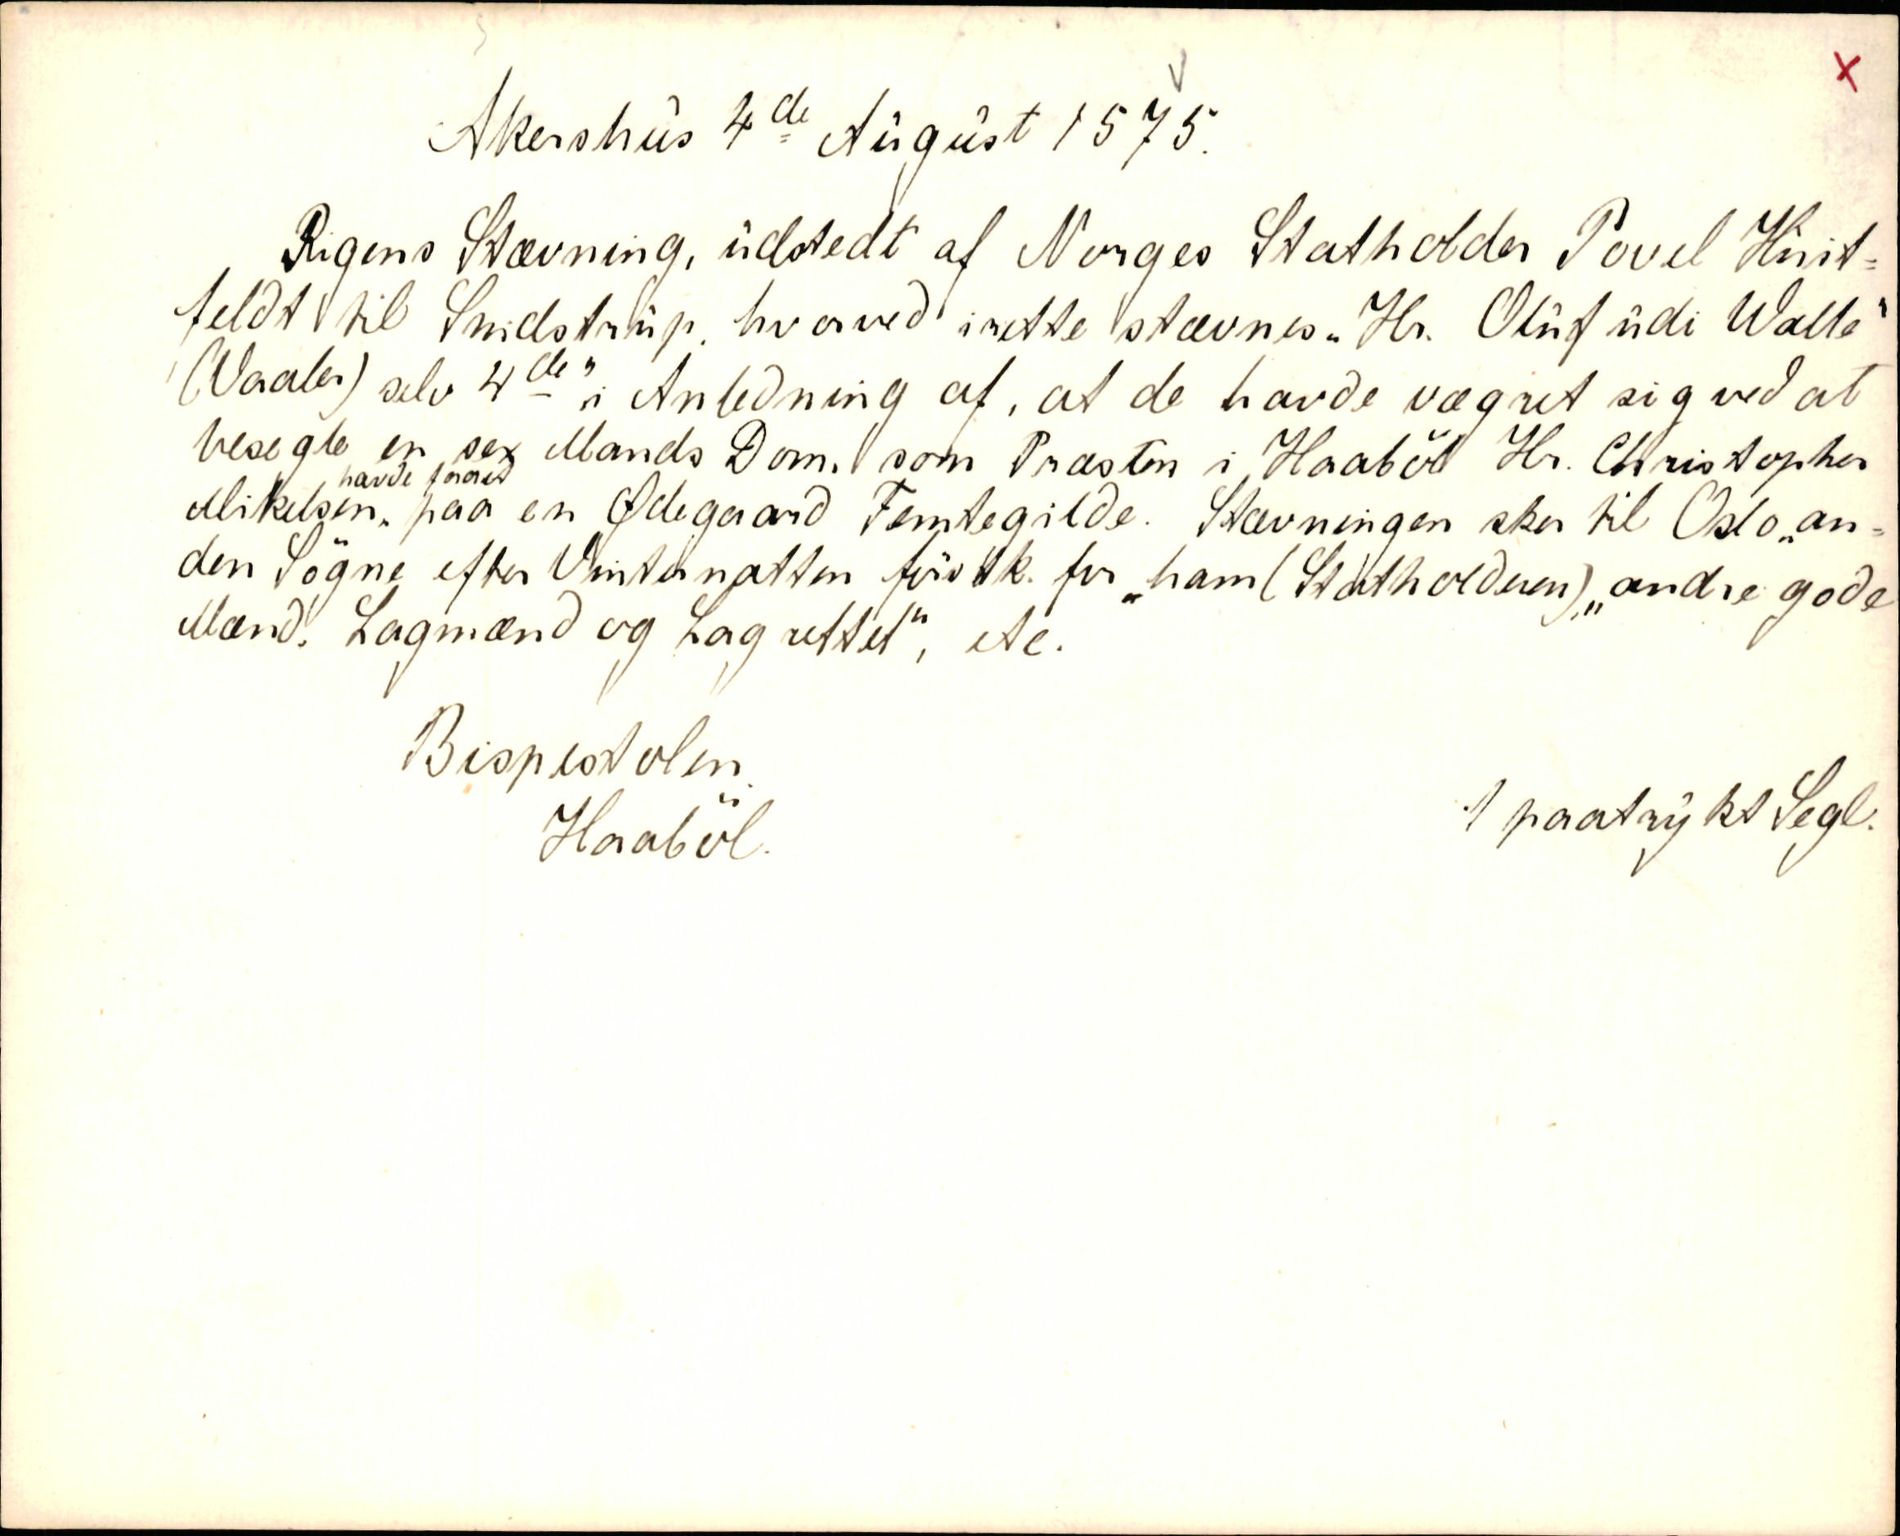 x
Akershus 4de August 1575.
Rigens Stævning, udstedt af Norges Statholder Povel Huit-
feldt til Snidstrup, hvorved irette stævnes „Hr. Oluf udi Walle"
(Vaaler) selv 4de" i Anledning af, at de havde vægret sig ved at
besegle en sex Mands Dom, som Præsten i Haaböl Hr. Christopher
havde faaet
Mikelsen, paa en Ødegaard Femtegilde. Stævningen sker til Oslo „an-
den Sögne efter Vinternatten förstk. for „ham (Statholderen)„, andre gode
Mænd, Lagmænd og Lagrettet", etc.
Bispestolen.
1 paatrykt Segl.
Haaböl.